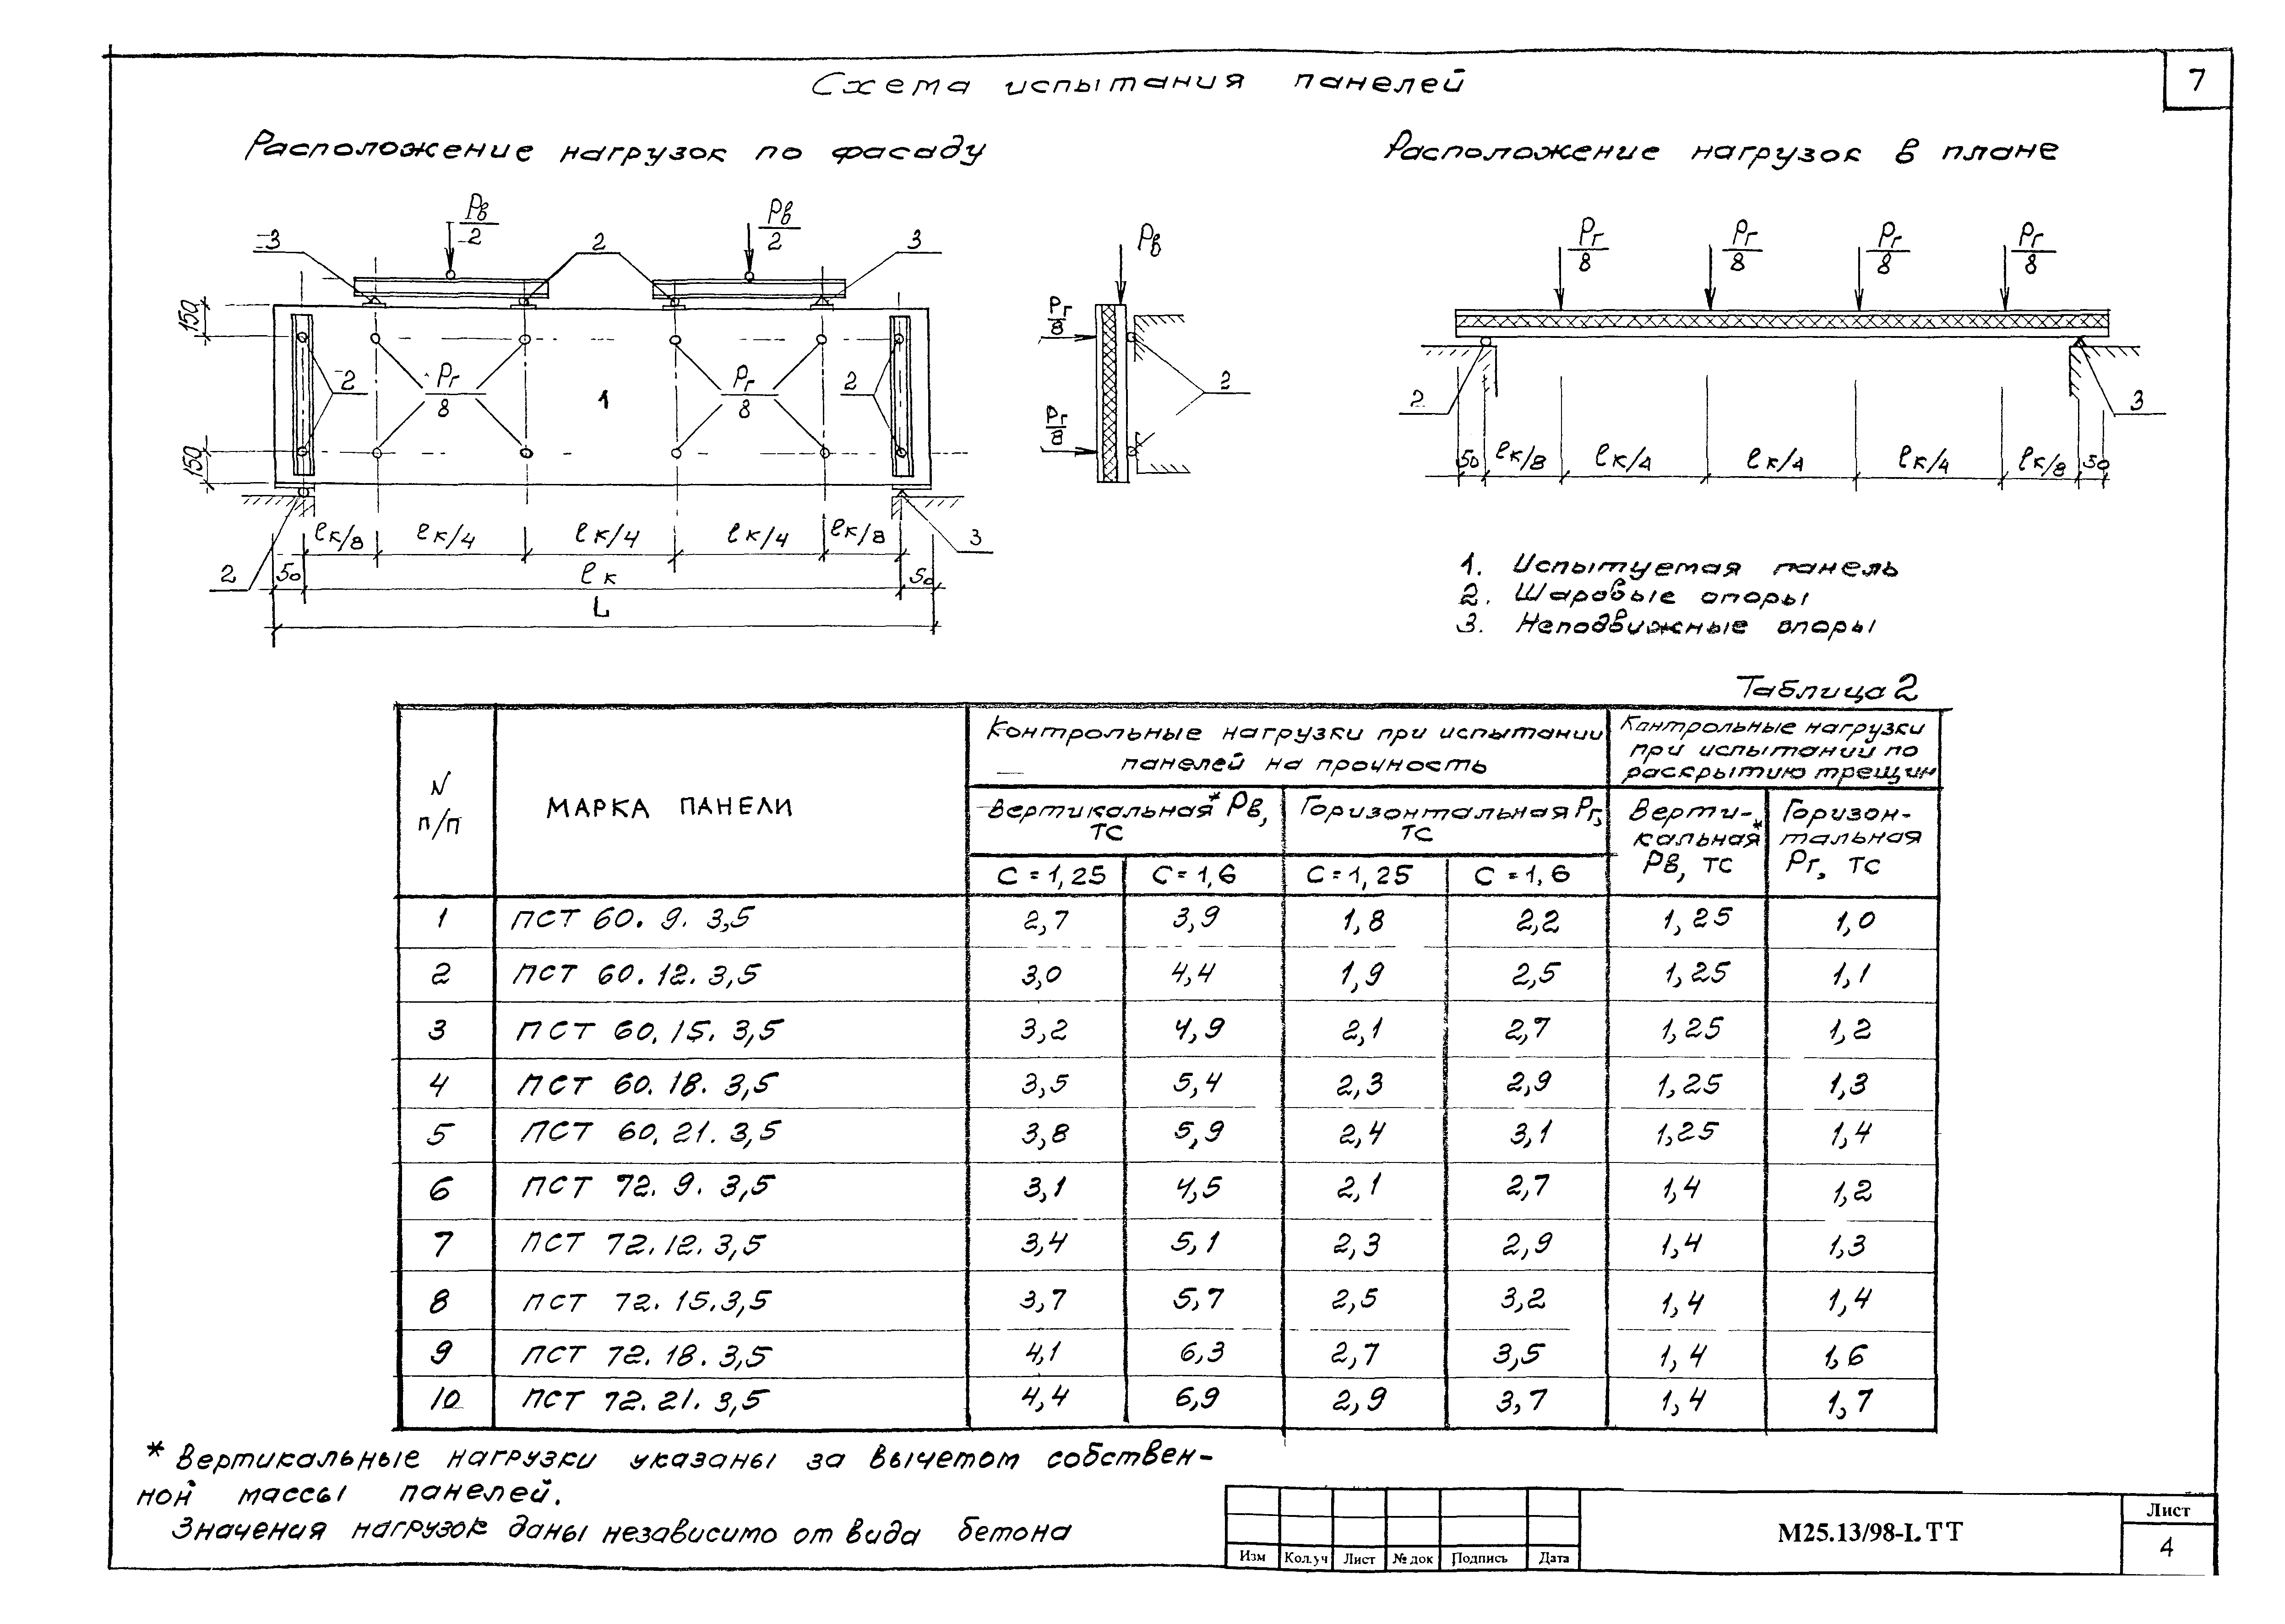 7
Схема испытания панелей
Расположение нагрузок по фасаду
Расположение нагрузок в плане
Рв/2 Рв/2
3 2 3
150
2 Рг/8 1 Рг/8 2
150
ℓк/8 ℓк/4 ℓк/4 ℓк/4 ℓк/8
2 50 ℓк 50 3
L
Рв
Рг/8
2
Рг/8
Рг/8 Рг/8 Рг/8 Рг/8
2 3
50 ℓк/8 ℓк/4 ℓк/4 ℓк/4 ℓк/8 50
1. Испытуемая панель
2. Шаровые опоры
3. Неподвижные опоры
Таблица 2
N п/п
МАРКА ПАНЕЛИ
Контрольные нагрузки при испытании
панелей на прочность
Контрольные нагрузки
при испытании по
раскрытию трещин
Вертикальная* Рв, ТС
Горизонтальная Рг, ТС
Верти-
кальная*
Рв, ТС
Горизон-
тальная
Рг, ТС
С = 1,25 С = 1,6 С = 1,25 С = 1,6
1 ПСТ 60. 9. 3,5 2,7 3,9 1,8 2,2 1,25 1,0
2 ПСТ 60. 12. 3,5 3,0 4,4 1,9 2,5 1,25 1,1
3 ПСТ 60. 15. 3,5 3,2 4,9 2,1 2,7 1,25 1,2
4 ПСТ 60. 18. 3,5 3,5 5,4 2,3 2,9 1,25 1,3
5 ПСТ 60. 21. 3,5 3,8 5,9 2,4 3,1 1,25 1,4
6 ПСТ 72. 9. 3,5 3,1 4,5 2,1 2,7 1,4 1,2
7 ПСТ 72. 12. 3,5 3,4 5,1 2,3 2,9 1,4 1,3
8 ПСТ 72. 15. 3,5 3,7 5,7 2,5 3,2 1,4 1,4
9 ПСТ 72. 18. 3,5 4,1 6,3 2,7 3,5 1,4 1,6
10 ПСТ 72. 21. 3,5 4,4 6,9 2,9 3,7 1,4 1,7
* Вертикальные нагрузки указаны за вычетом собствен-
ной массы панелей.
Значения нагрузок даны независимо от вида бетона
Изм Кол.уч Лист № док Подпись Дата
М25.13/98-I.ТТ
Лист
4